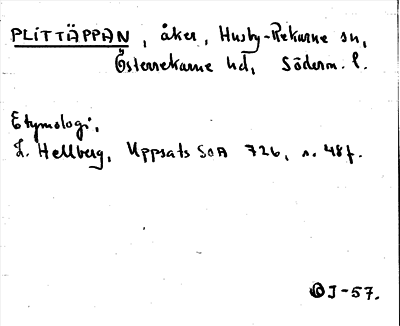 PLITTÄPPAN, åker, Husby-Rekarne sn,
Österrekarne hd, Söderm. l.
Etymologi,
L. Hellberg, Uppsats SOA 726, s. 48f.
J-57.